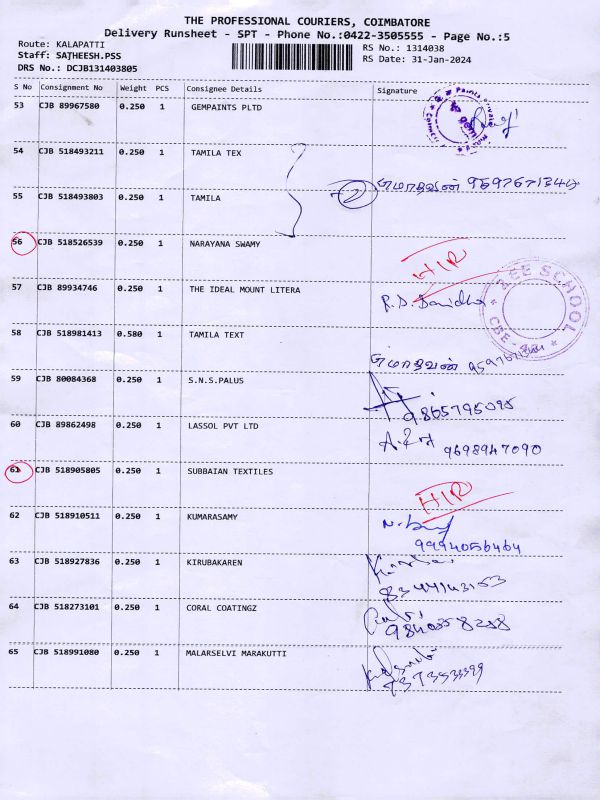 THE PROFESSIONAL COURIERS, COIMBATORE
Delivery Runsheet - SPT - Phone No.:0422-3505555 - Page No.:5
Route: KALAPATTI
RS No.: 1314038
Staff: SATHEESH.PSS
RS Date: 31-Jan-2024
DRS No.: DCJB131403805
S No Consignment No Weight PCS Consignee Details Signature
53 CJB 89967580 0.250 1 GEMPAINTS PLTD
54 CJB 518493211 0.250 1 TAMILA TEX
2 எமாதவன்
55 CJB 518493803 0.250 1 TAMILA
56 CJB 518526539 0.250 1 NARAYANA SWAMY
HIR
57 CJB 89934746 0.250 1 THE IDEAL MOUNT LITERA
ZEE SCHOOL
58 CJB 518981413 0.580 1 TAMILA TEXT
எமாதவன்
59 CJB 80084368 0.250 1 S.N.S.PALUS
9865795095
60 CJB 89862498 0.250 1 LASSOL PVT LTD
9698947090
61 CJB 518905805 0.250 1 SUBBAIAN TEXTILES
HIR
62 CJB 518910511 0.250 1 KUMARASAMY
9994056464
63 CJB 518927836 0.250 1 KIRUBAKAREN
8344143153
64 CJB 518273101 0.250 1 CORAL COATINGZ
65 CJB 518991080 0.250 1 MALARSELVI MARAKUTTI